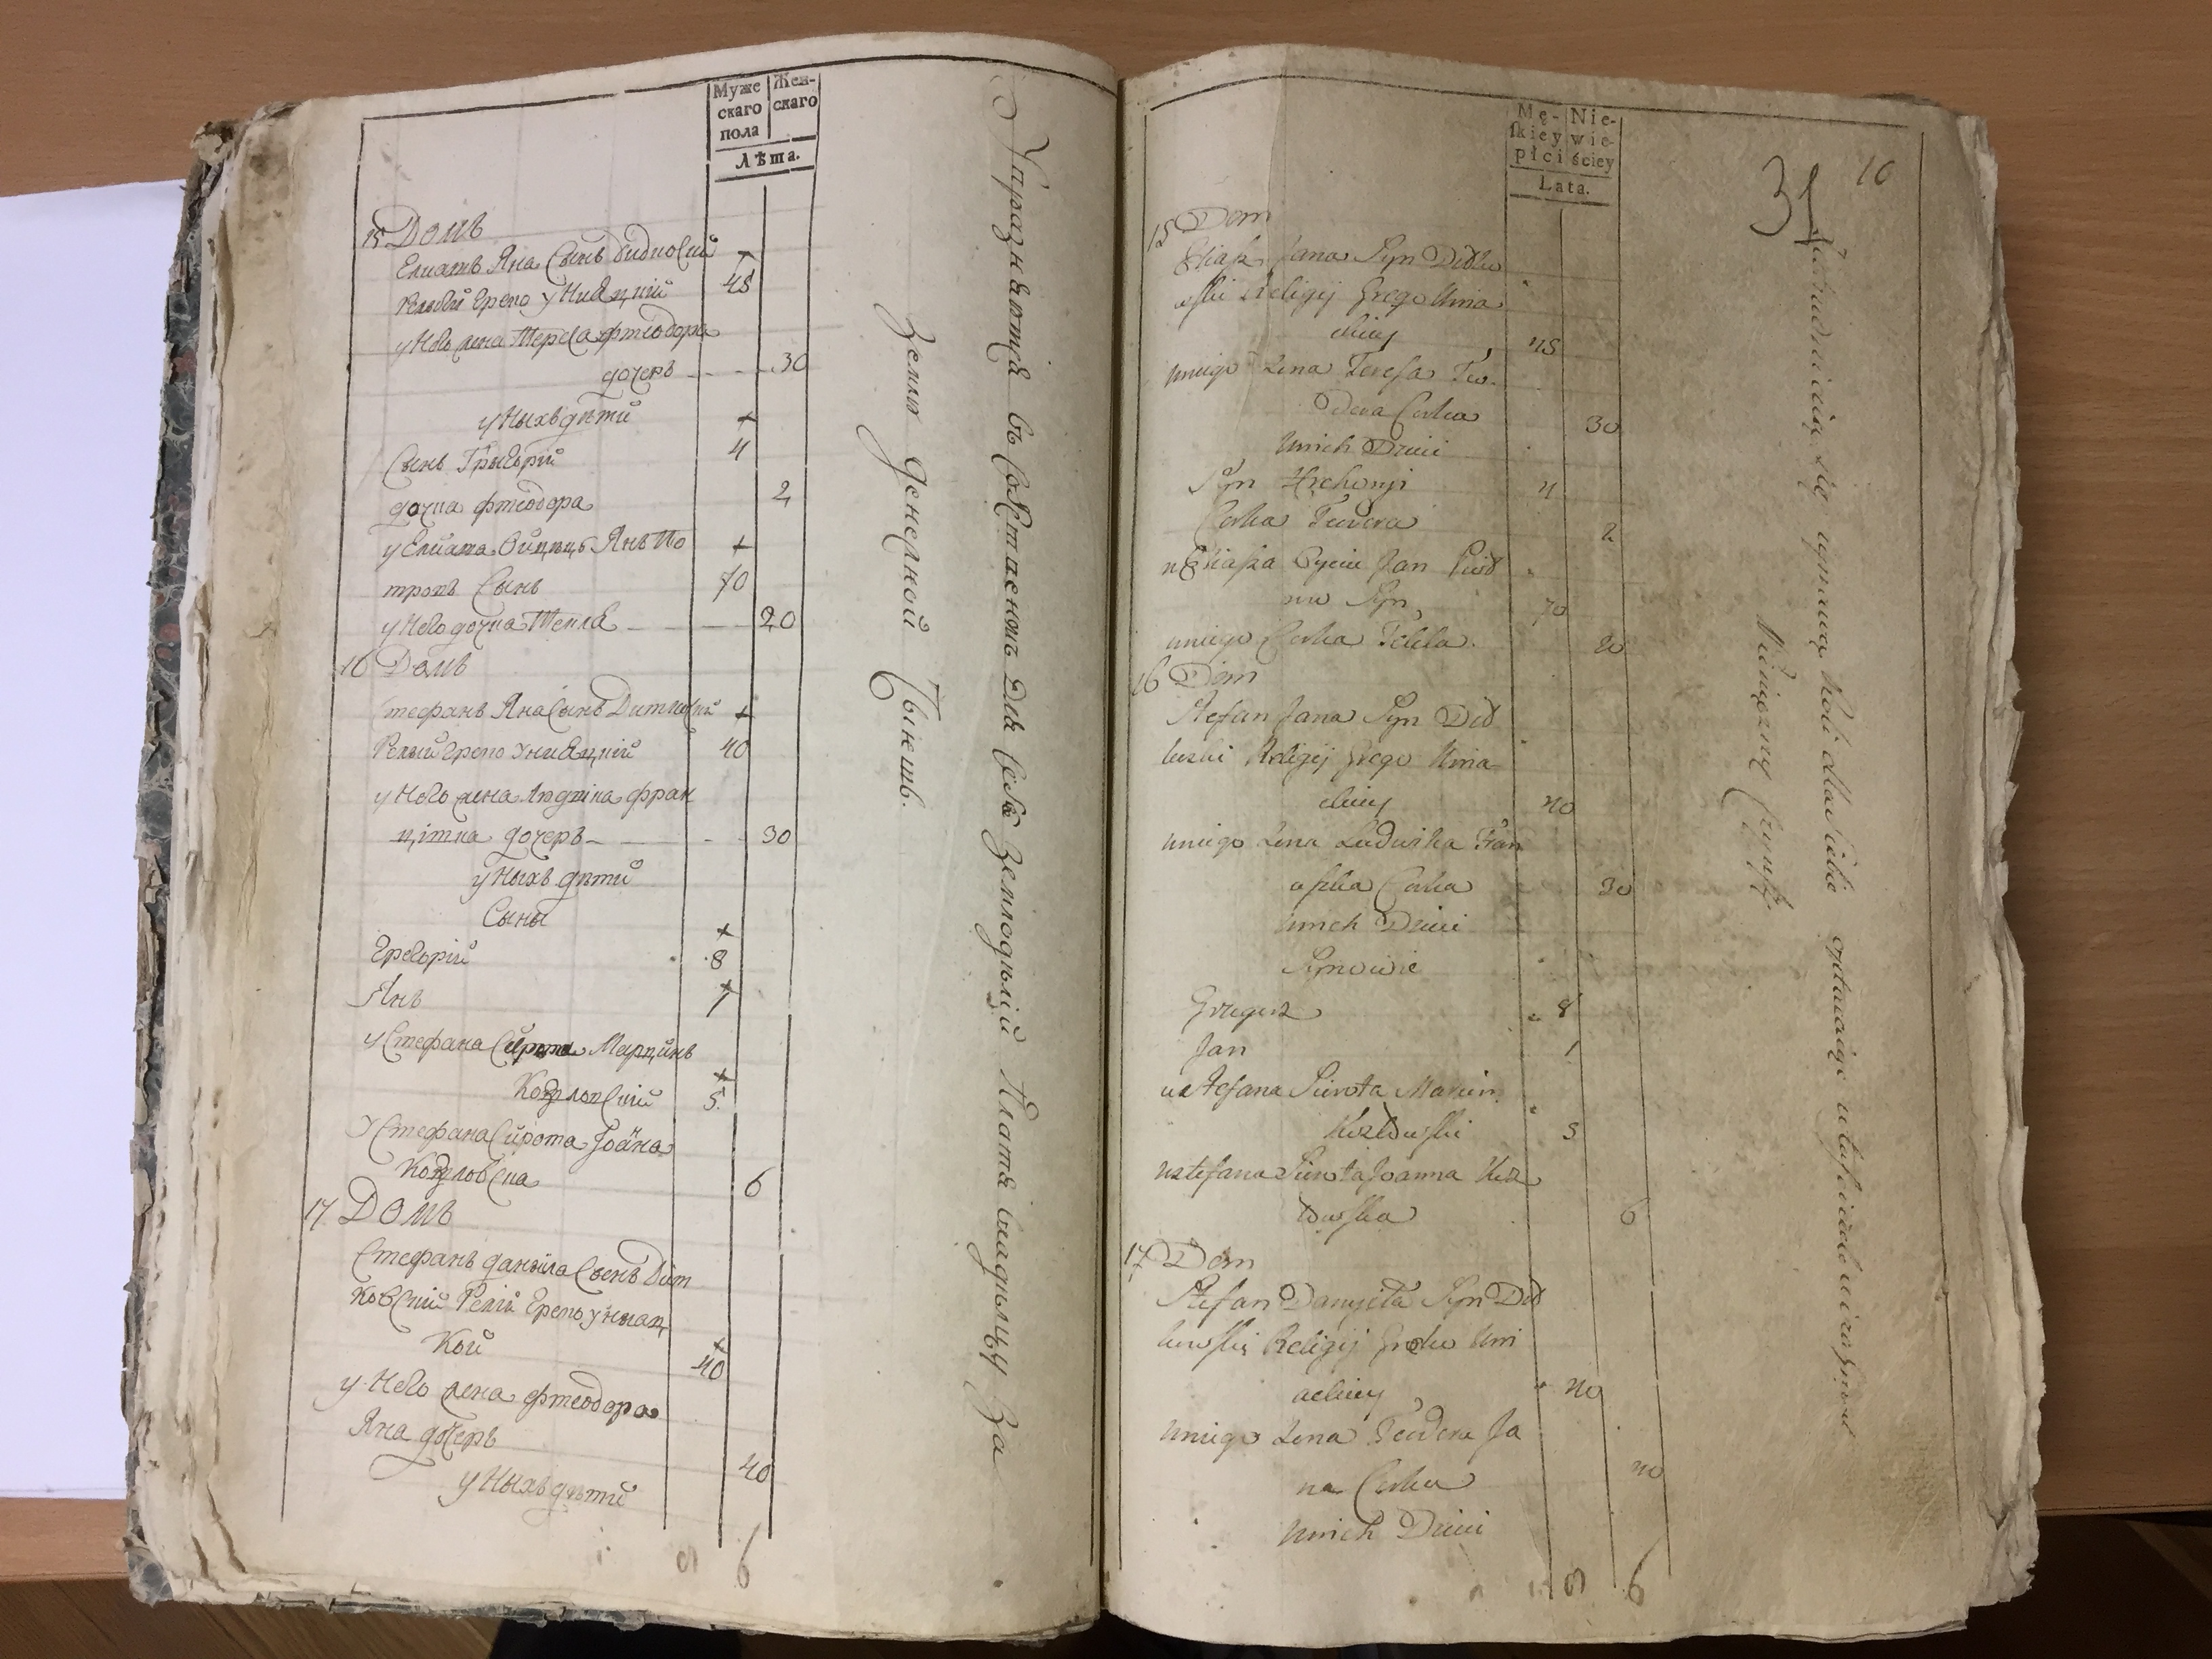 Муже
скаго
пола
Жен-
скаго
Лѣта.
15 Домъ
Елиашъ Яна Сынъ Дидков
Релѣи Греко Униацкій 45
у Него жена Тереса Фтеодора
дочерь 30
у Ныхъ дѣти
Сынъ Грыгорій 4
дочка Фтеодора 2
у Елиаша Ойцецъ Янъ Пю
тровъ Сынъ 70
у Него дочка Текля 20
16 Домъ
Стефанъ Яна Сынъ Дитковскій
Релѣи Греко Униацкій 40
у Него жена Людвіка Фран
цішка дочерь 30
у Ныхъ дѣти
Сыны
Грегорій 8
Янъ 1
у Стефана Сирота Марцинъ
Козловскій 5
у Стефана Сирота Іоанна
Козловска 6
17 Домъ
Стефанъ Даныла Сынъ Дит
ковскій Реліи Греко Униац
кой 40
у Него жена Фтеодора
Яна дочерь 40
у Ныхъ дѣти
6
Упражняются въ для себя Платя за
Земли Денежной Чыншъ.
Mę-
skiey
płci
Nie-
wie-
ściey
Lata.
10
31
15 Dom
Eliasz Jana Syn Didko
wski Religij Grego Unia
ckiey 45
uniego Żona Teresa Teo
dora Corka 30
unich Dzieci
Syn Hrehory 4
Corka Teodora 2
u Eliasza Oyciec Jan Piod
row Syn 70
uniego Corka Tekla 20
16 Dom
Stefan Jana Syn Did
kowski Religij Grego Unia
ckiey 40
uniego Żona Ludwika Fran
ciszka Corka 30
unich Dzieci
Synowie
Grzegorz 8
Jan 1
u Stefana Sierota Marcin
Kozłowski 5
u Stefana Sierota Joanna Koz
łowska 6
17 Dom
Stefan Danyiła Syn Did
kowski Religij Greko Uni
ackiey 40
uniego Żona Teodora Ja
na Corka 40
unich Dzieci
6
Zatrudniaią się uprawą Roli dla siebie opłacaiąc
Pieniężny Czynsz